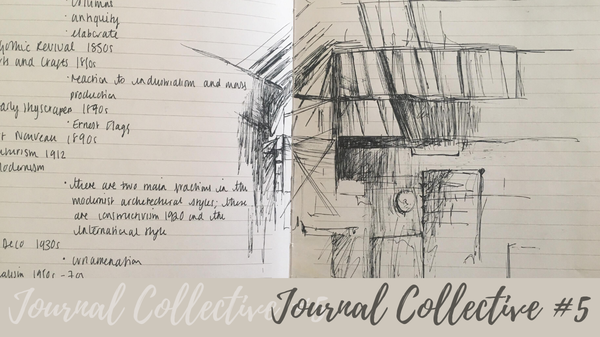 · columns
· antiquity
· elaborate
Gothic Revival 1850s
and Crafts
· reaction to industrialism and mass
production
arly Skyscraper 1890s
· Ernest Flagg
t Nouveau 1890s
uturism 1912
odernism
· there are two main fraction in the
modernist architectural styles; there
are constructivism 1920 and the
international style
Deco 1930s
· ornamentation
alism 1950s - 70s
Journal Collective #5
Journal Collective #5